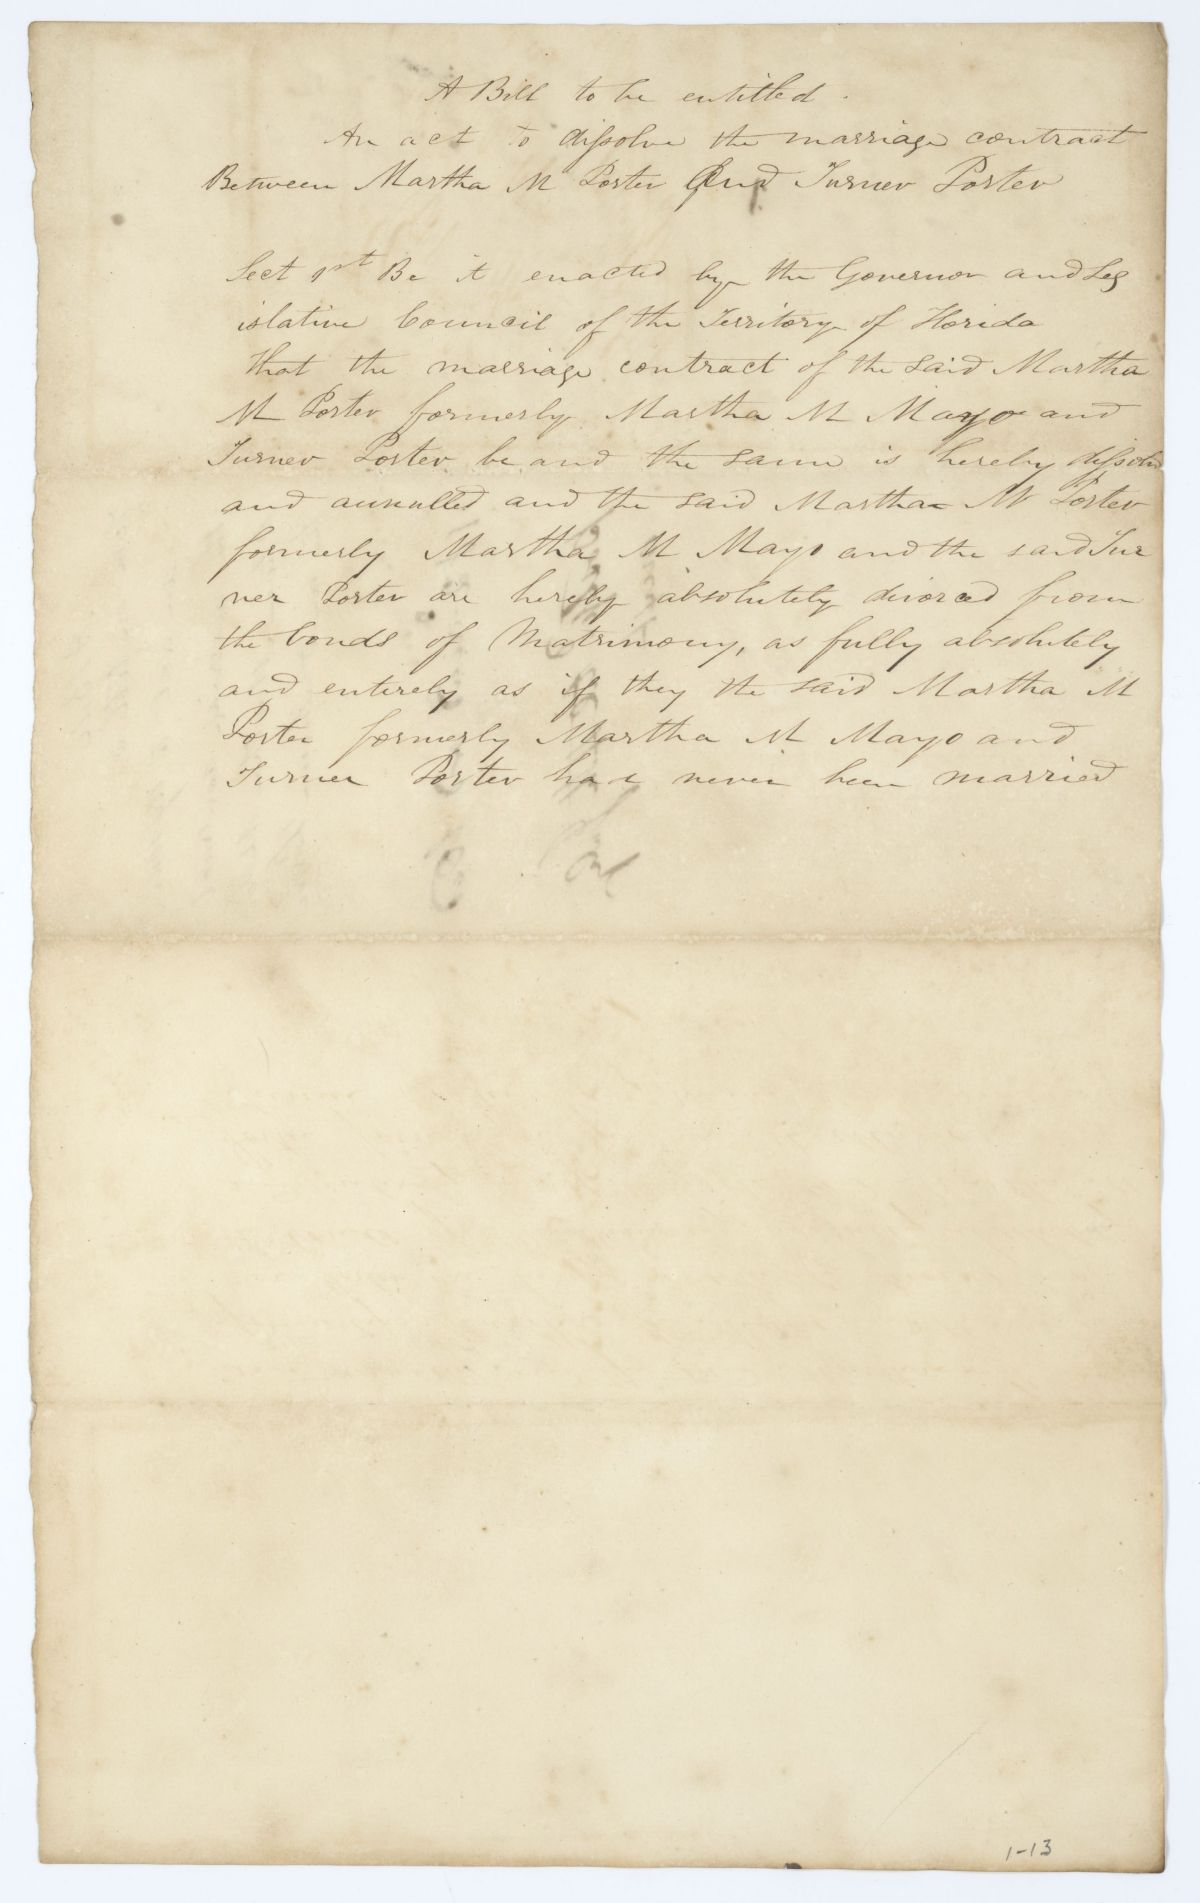 A Bill to be entitled.
An act to dissolve the marriage contract
Between Martha M Porter And Turner Porter
Sect 1st Be it enacted by the Governor and Leg
islative Council of the Territory of Florida
that the marriage contract of the said Martha
M Porter formerly Martha M Mayo and
Turner Porter be and the same is hereby dissolved
and annulled and the said Martha M Porter
formerly Martha M Mayo and the said Tur
ner Porter are hereby absolutely divorced from
the bonds of Matrimony, as fully absolutely
and entirely as if they the said Martha M
Porter formerly Martha M Mayo and
Turner Porter had never been married
1-13